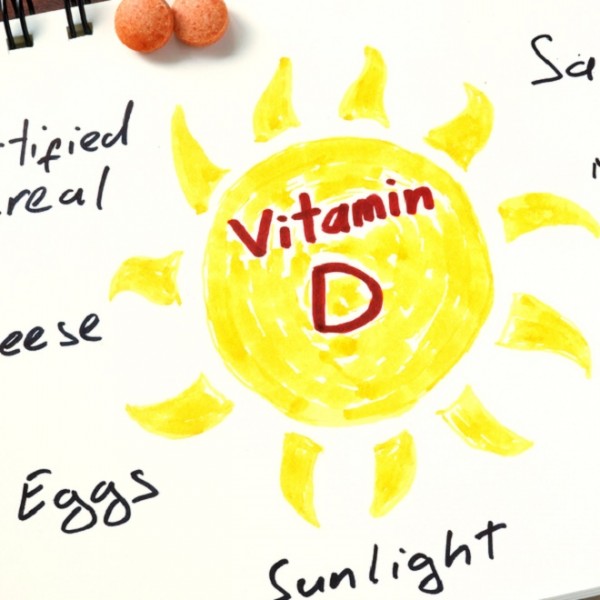 Sa
tified
real
Vitamin
D
eese
Eggs
Sunlight